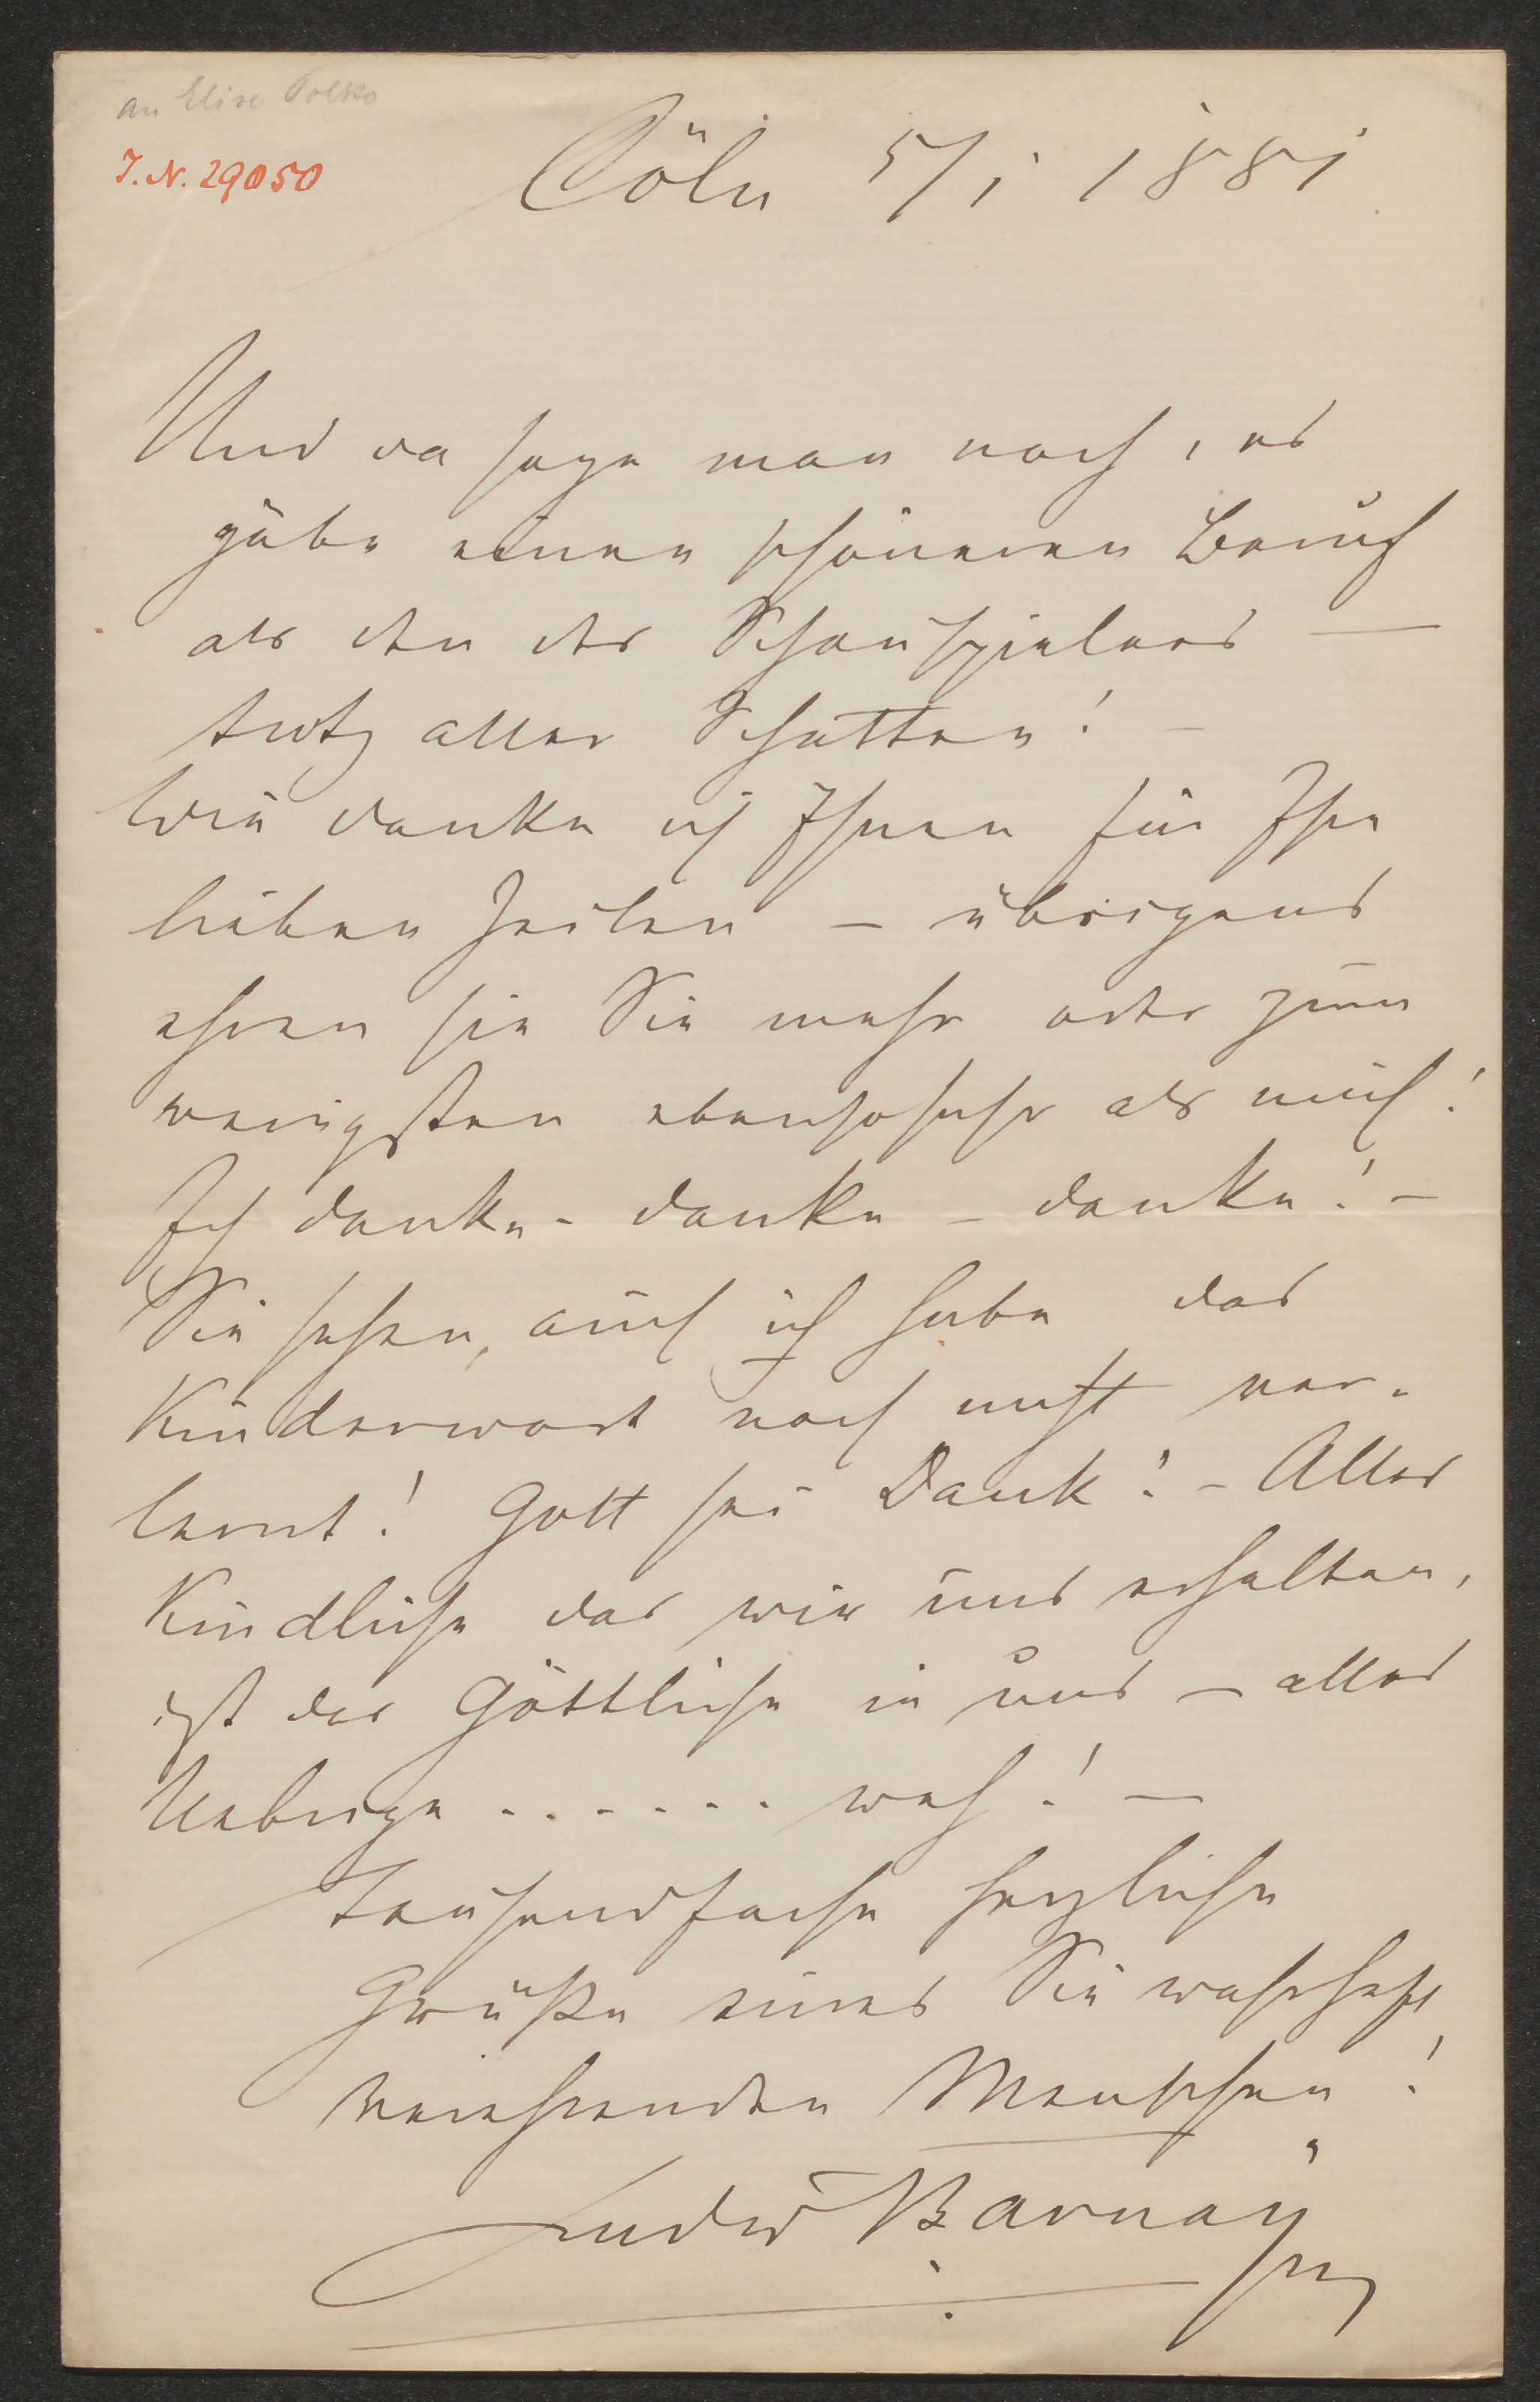 an Elise Polko
I. N. 29050
Cöln 5/1 1881
Und da sage man noch, es
gäbe einen schöneren Beruf
als den des Schauspielers —
trotz aller Schatten! —
Wie danke ich Ihnen für Ihre
lieben Zeilen — übrigens
ehren sie Sie mehr oder zum
wenigsten ebensosehr als mich!
Ich danke - danke - danke! -
Sie sehen, auch ich habe das
Kinderwort noch nicht ver-
lernt! Gott sei Dank! - Alles
Kindliche das wir uns erhalten,
ist das Göttliche in uns — alles
Uebrige . . . . . . weh! —
Tausendfache herzliche
Grüße eines Sie wahrhaft
verehrenden Menschen!
Ludw Barnay